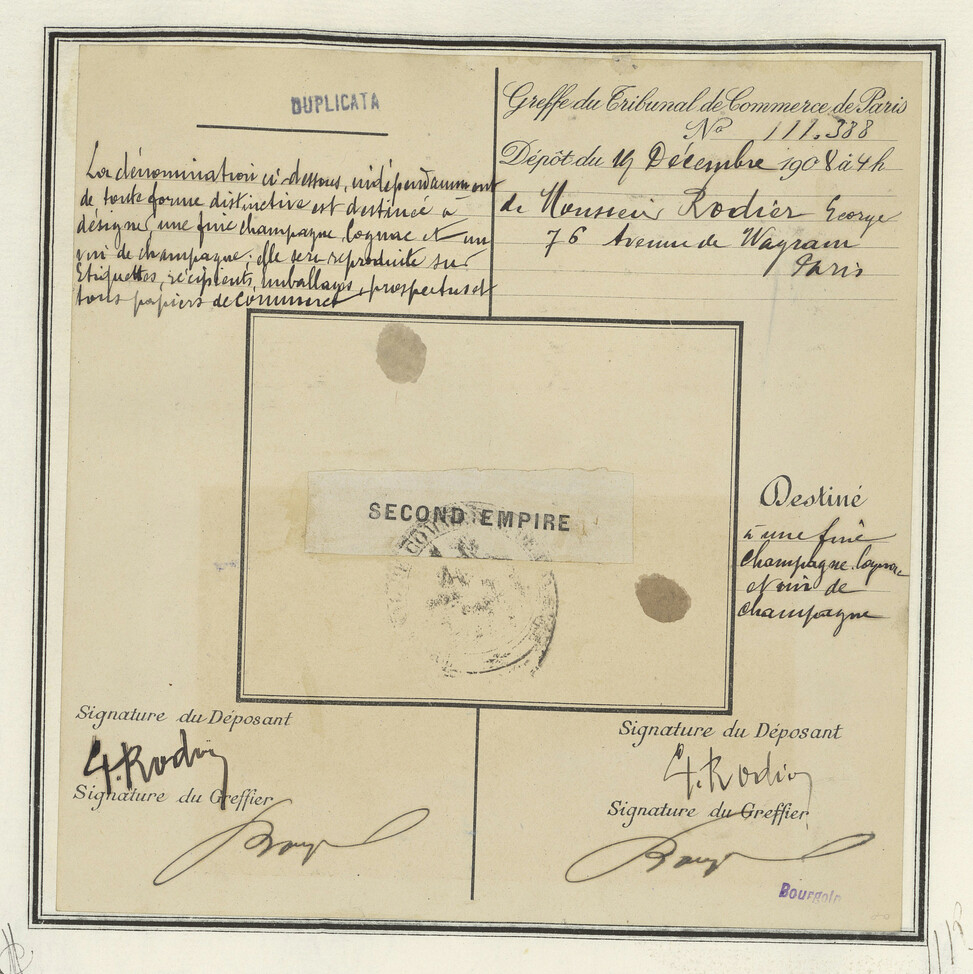 DUPLICATA
La dénomination ci-dessous, indépendamment
de toute forme distinctive est destinée à
désigner une fine champagne, Cognac et un
vin de champagne; elle sera reproduite sur
Etiquettes, récipients, emballages, prospectus et
tous papiers de commerce
Greffe du Tribunal de Commerce de Paris
No 111.388
Dépôt du 19 Décembre 1908 à 4h
de Monsieur Rodier George
76 Avenue de Wagram
Paris
SECOND EMPIRE
Destiné
à une fine
champagne, Cognac
et vin de
champagne
Signature du Déposant
G. Rodier
Signature du Greffier
Signature du Déposant
G. Rodier
Signature du Greffier
Bourgoin